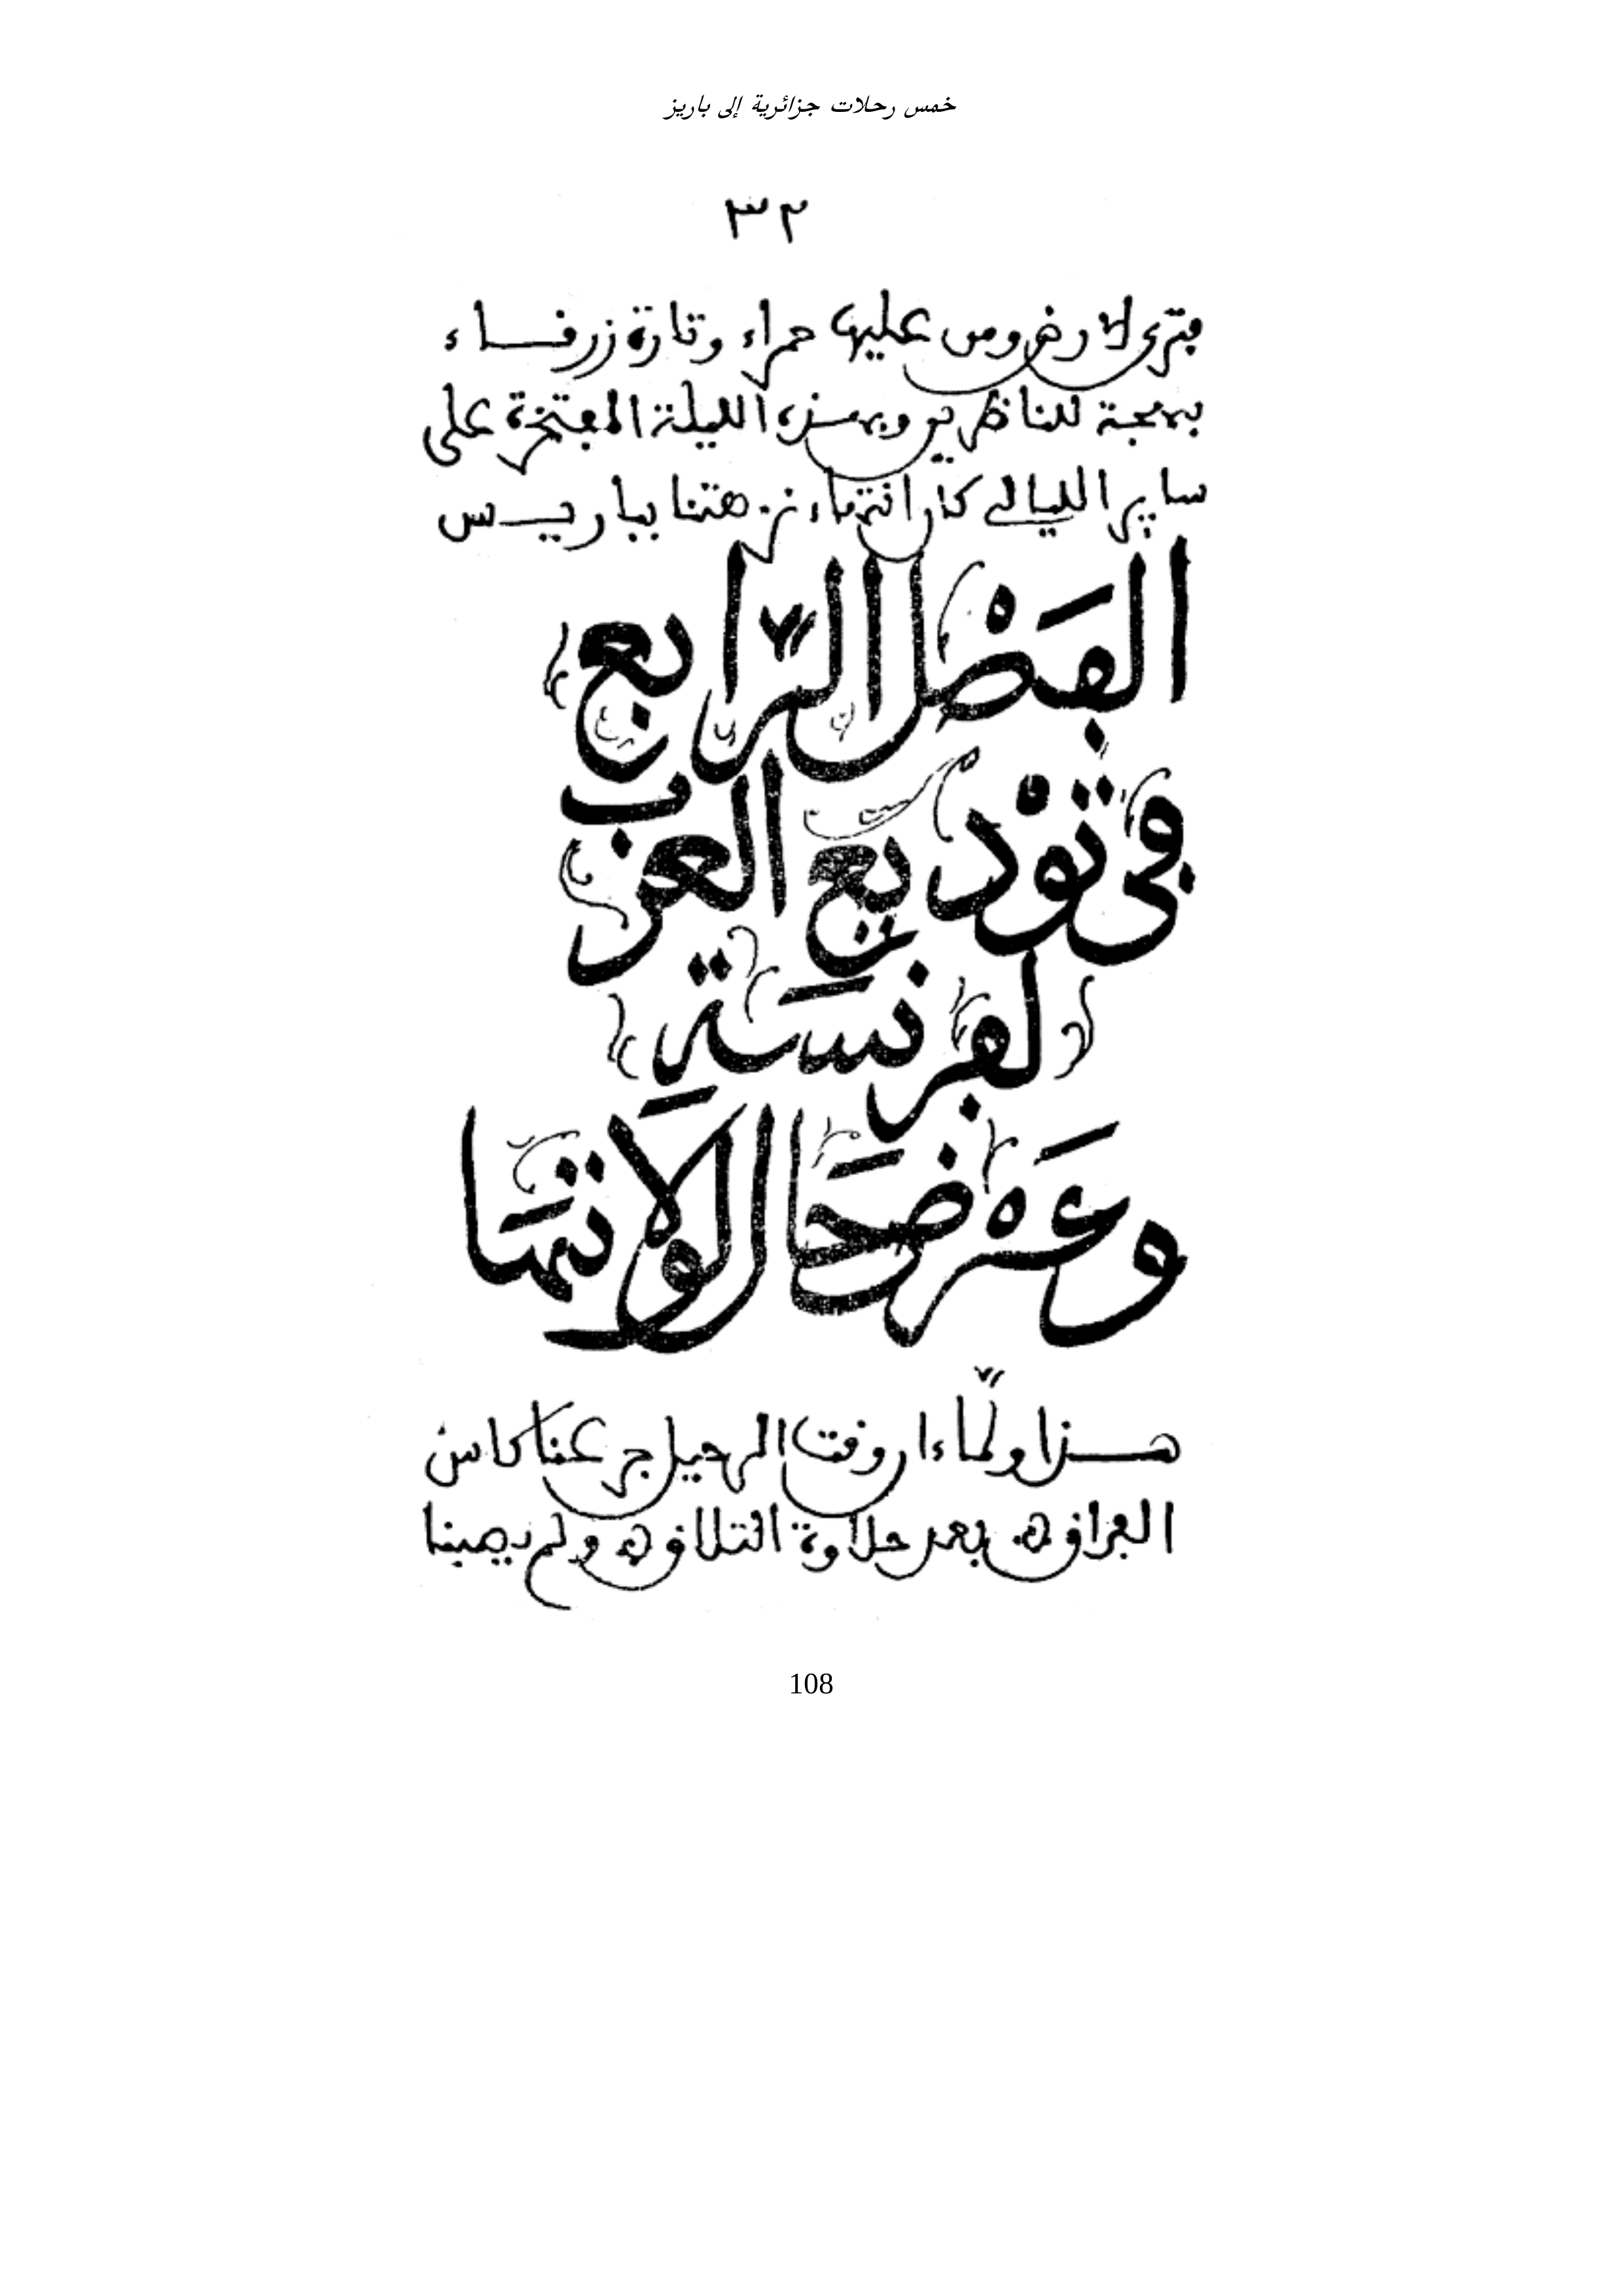 خمس رحلات جزائرية إلى باريز
٣٢
فترى الارض ومن عليها حمراء وتارة زرقاء
بهجة للناظرين وبهذه الليلة المفتخرة على
ساير الليالي كان انتهاء نزهتنا بباريس
الفَصْل الرّابع
في تَوْديع العرب
لفرنسَة
وعَرْضحَال ولاتهَا
هذا ولمّا ءان وقت الرحيل جرعنا كاس
الفراق بعد حلاوة التلاق ولم يصبنا
108